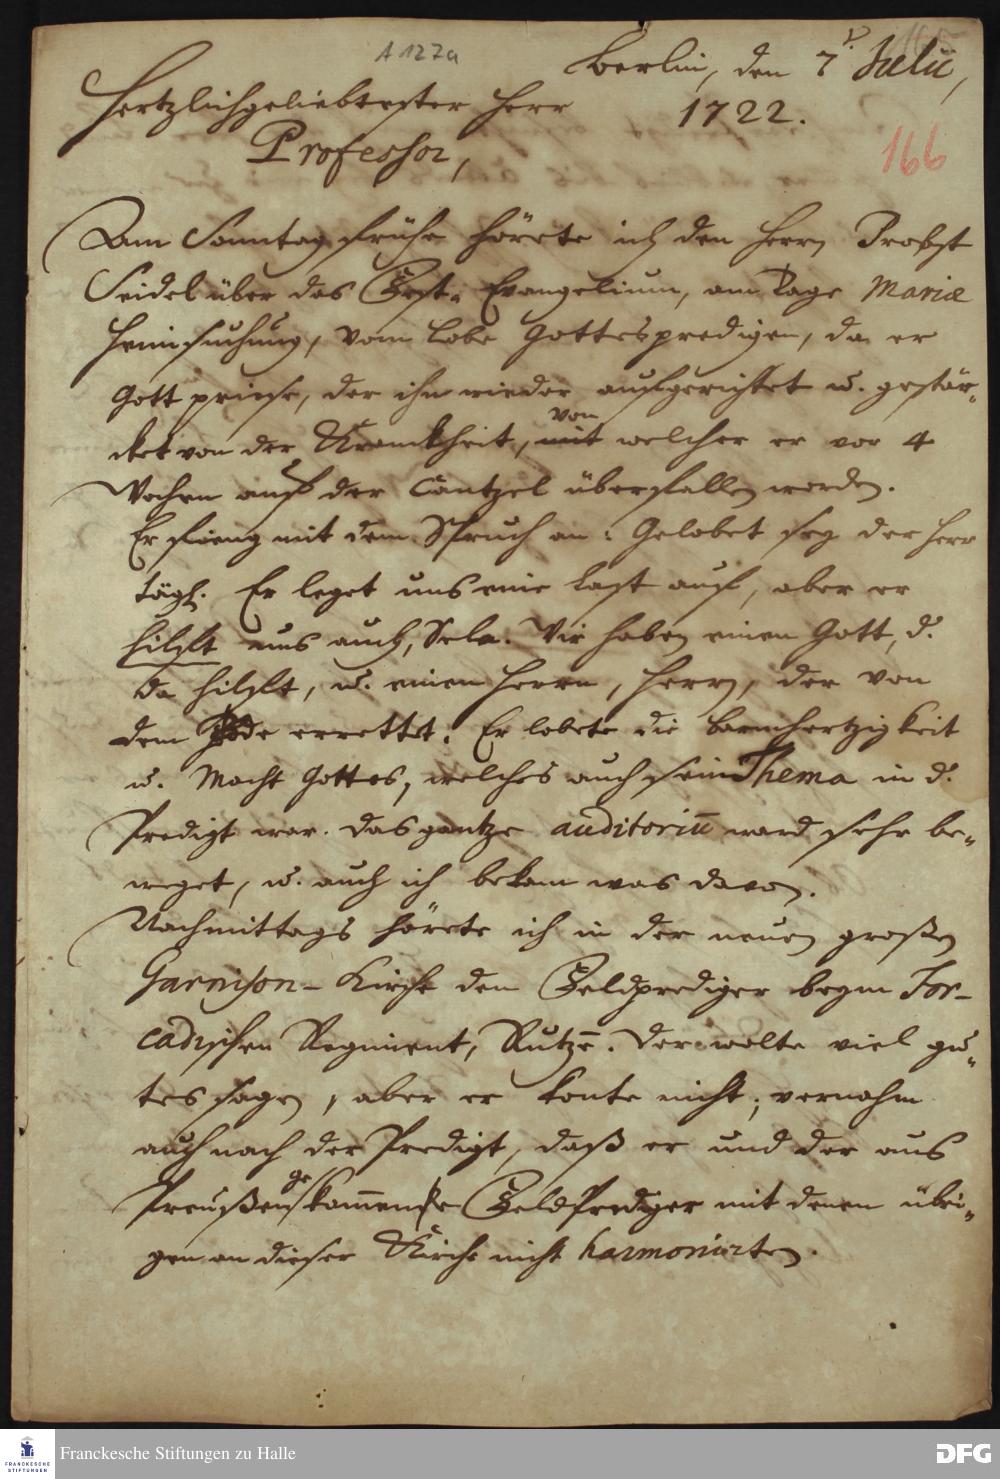 A 127a
165
Berlin, den 7. Julii,
Hertzlichgeliebtester Herr 1722.
Professor,
166
Am Sonntag frühe hörete ich den Herrn Probst
Seidel über das Fest-Evangelium, am Tage Mariæ
Heimsuchung, vom Lobe Gottes predigen, da er
Gott priese, der ihn wieder aufgerichtet u. gestär-
cket von der Kranckheit, mit von welcher er vor 4
Wochen auf der Cantzel überfallen worden.
Er fieng mit dem Spruch an: Gelobet sey der Herr
tägl. Er leget uns eine Last auf, aber er
hilfft uns auch, Sela. Wir haben einen Gott, d.
da hilfft, u. einen Herrn, Herrn, der von
dem Tode errettet. Er lobete die Barmhertzigkeit
u. Macht Gottes, welches auch sein Thema in d.
Predigt war. Das gantze auditoriū ward sehr be-
weget, u. auch ich bekam was davon.
Nachmittags hörete ich in der neuen großen
Garnison-Kirche den Feldprediger beym For-
cadischen Regiment, Rutzē. Der wolte viel gu-
tes sagen, aber er konte nicht; vernahm
auch nach der Predigt, daß er und der aus
Preußen gekom̄ene Feldprediger mit denen übri-
gen an dieser Kirche nicht harmonirten.
Franckesche Stiftungen zu Halle
FRANCKESCHE
STIFTUNGEN
DFG